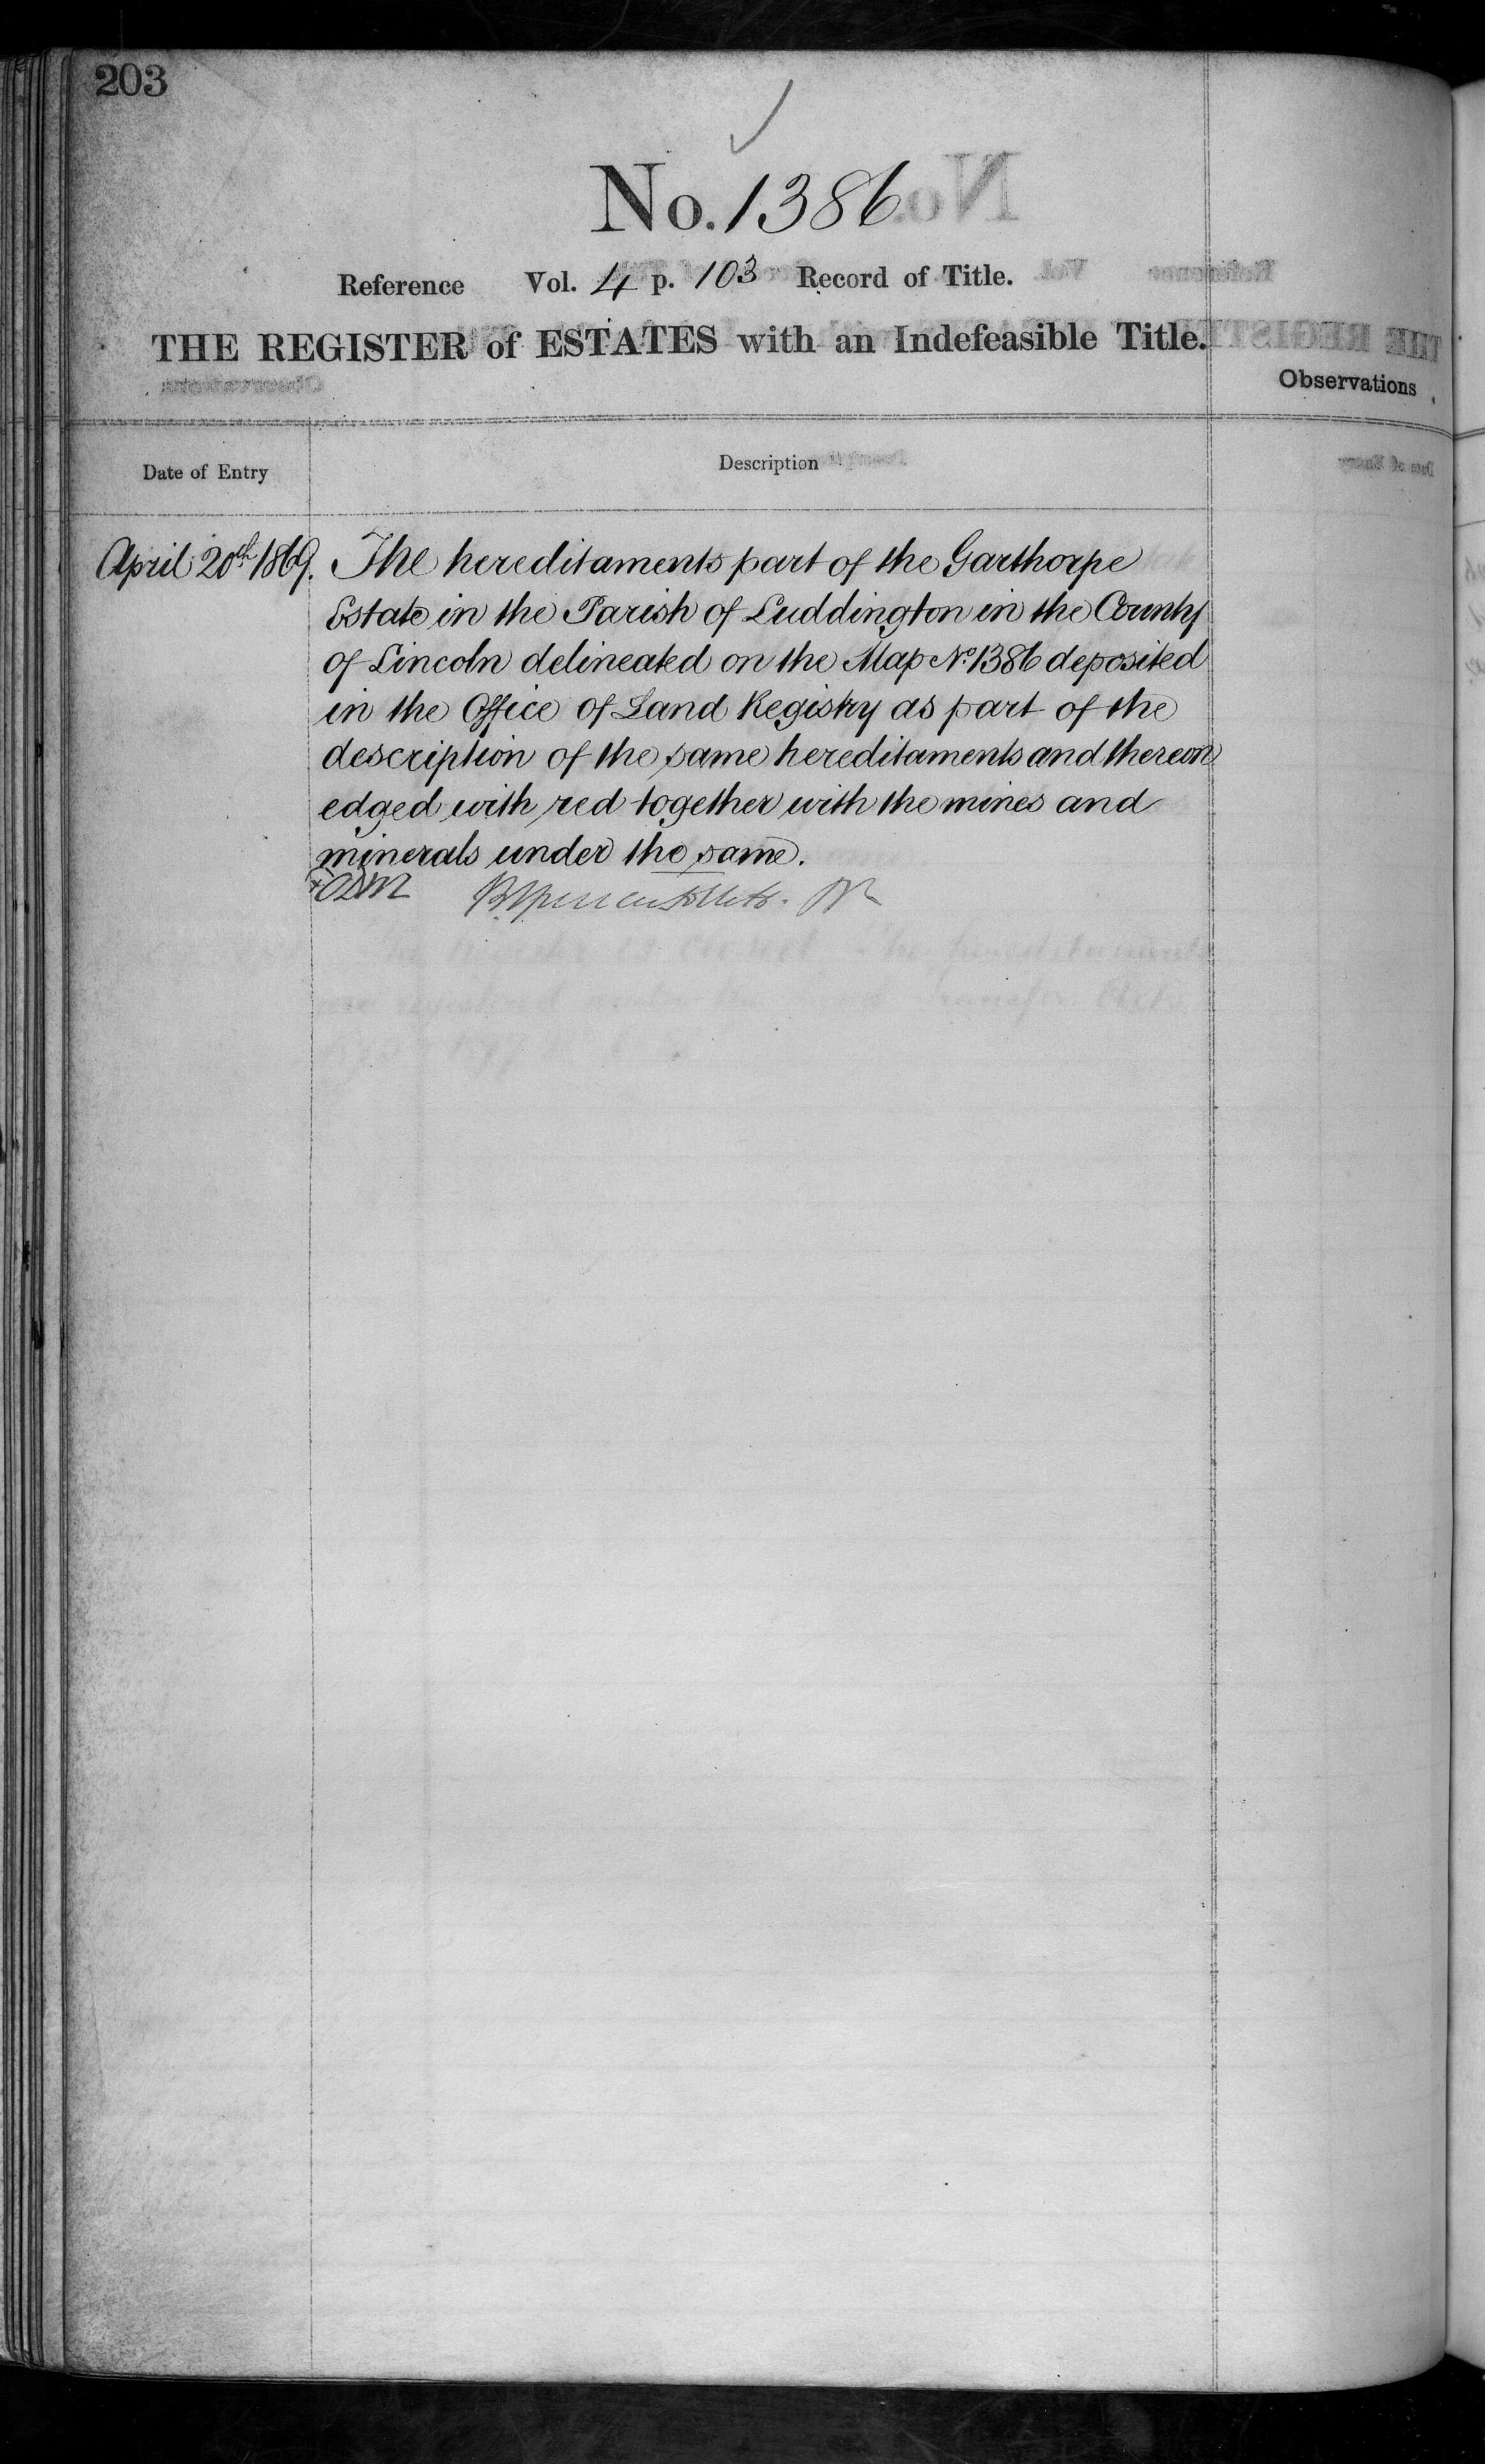 203
No. 1386
Reference Vol. 4 p. 103 Record of Title.
THE REGISTER of ESTATES with an Indefeasible Title.
Observations
Date of Entry
Description
April 20th 1869. The hereditaments part of the Garthorpe
Estate in the Parish of Luddington in the County
of Lincoln delineated on the Map No. 1386 deposited
in the Office of Land Registry as part of the
description of the same hereditaments and thereon
edged with red together with the mines and
minerals under the same.